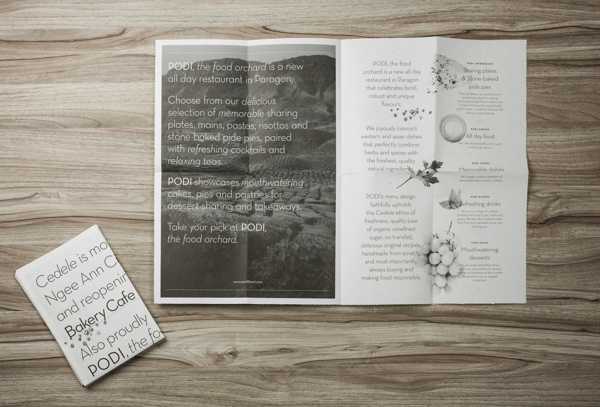 PODI, the food orchard is a new
all day restaurant in Paragon.
Choose from our delicious
selection of memorable sharing
plates, mains, pastas, risottos and
stone-baked pide pies, paired
with refreshing cocktails and
relaxing teas.
PODI showcases mouthwatering
cakes, pies and pastries for
dessert sharing and takeaways.
Take your pick at PODI,
the food orchard.
PODI, the food
orchard is a new all day
restaurant in Paragon
that celebrates bold,
robust and unique
flavours.
We joyously concoct
western and asian dishes
that perfectly combine
herbs and spices with
the freshest, quality
natural ingredients.
PODI's menu design
faithfully upholds
the Cedele ethos of
freshness, quality (use
of organic unrefined
sugar, no transfat),
delicious original recipes,
handmade from scratch
and most importantly,
always buying and
making food responsibly.
Sharing plates
& Stone-baked
pide pies
All day food
Memorable dishes
Refreshing drinks
Mouthwatering
desserts
Cedele is mo
Ngee Ann C
and reopenin
Bakery Cafe
Also proudly
PODI, the fo